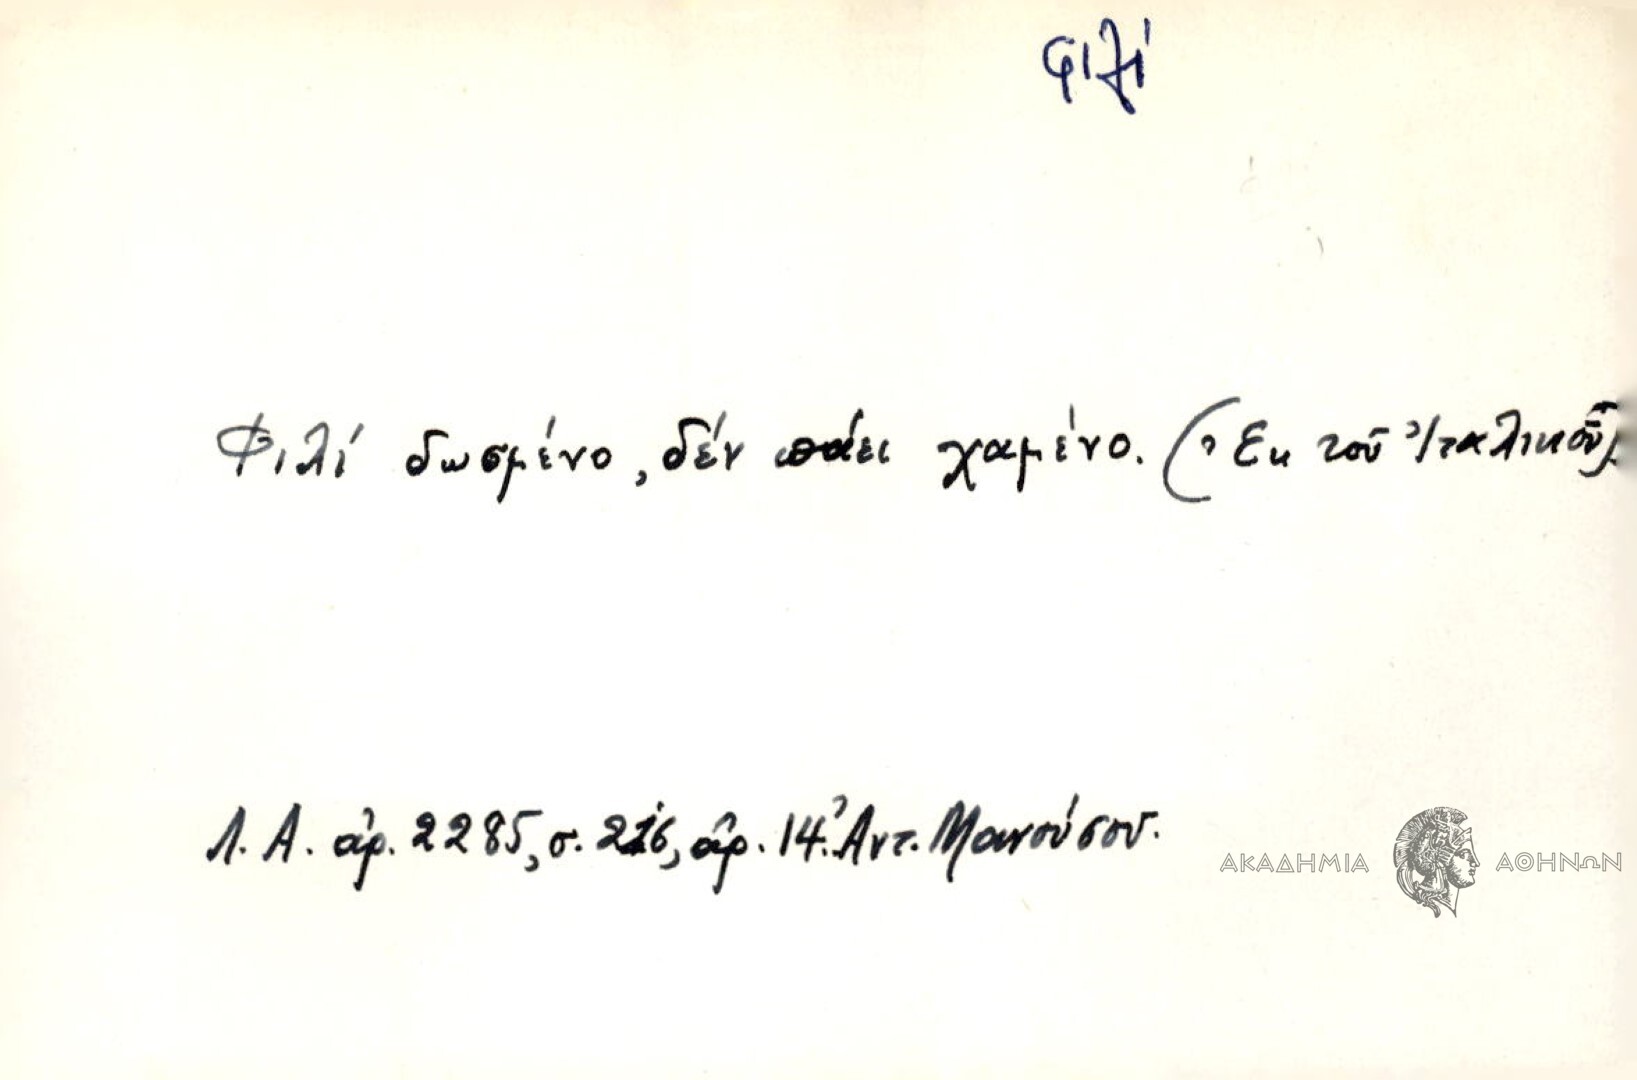 φιλί
Φιλί δωσμένο, δέν πάει χαμένο. (Ἐκ τοῦ Ἰταλικοῦ).
Λ. Α. ἀρ. 2285, σ. 216, ἀρ. 14. Ἀντ. Μανούσου.
ΑΚΑΔΗΜΙΑ ΑΘΗΝΩΝ